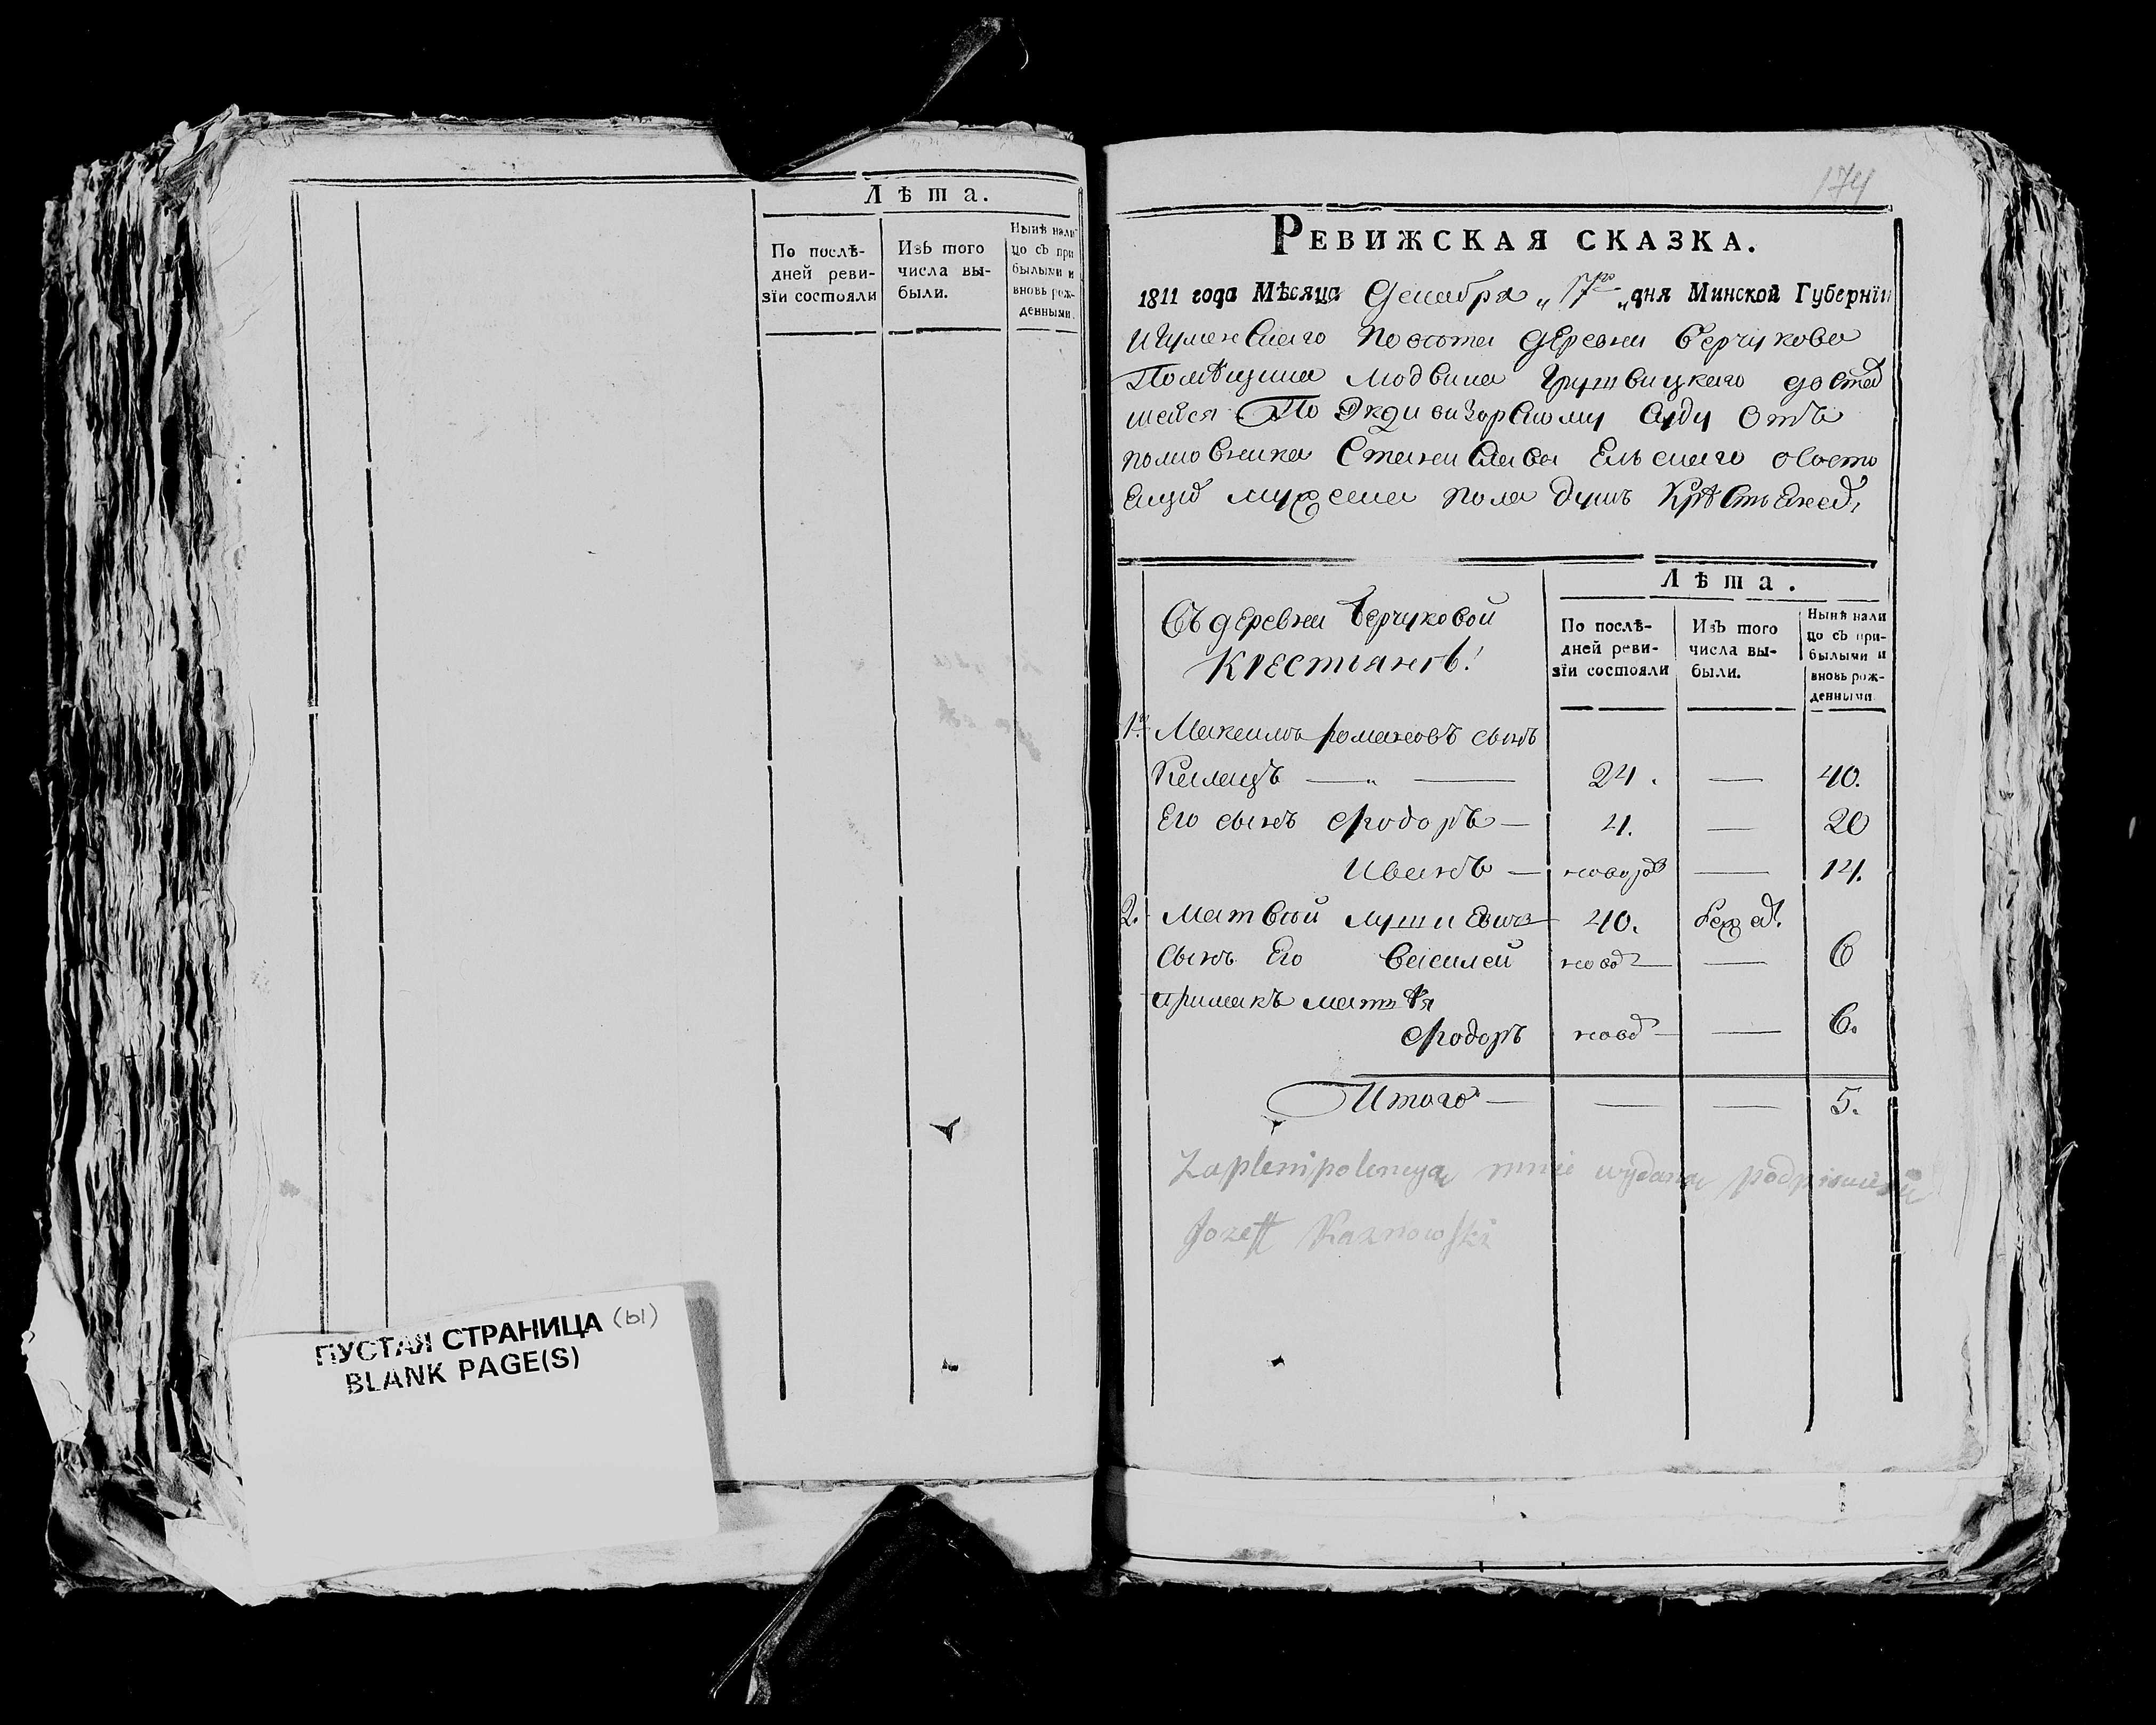 Лѣта.
По послѣ-
дней реви-
зїи состояли
Изъ того
числа вы-
были.
Нынѣ нали
цо съ при
былыми и
вновь рож-
денными.
ПУСТАЯ СТРАНИЦА (ы)
BLANK PAGE(S)
174
РЕВИЖСКАЯ СКАЗКА.
1811 года Мѣсяца Декабря „17го „дня Минской Губернїи
Игуменскаго Повѣта деревни Берчукова
Помѣщика Людвика
шейся По Экдивизорскому суду Отъ
полковника Станислава Ельскаго о состо
ящиъ мужеска пола душъ Крѣстьянеъ,
Съ деревни Берчуковой
Крестьянъ!
Лѣта.
По послѣ-
дней реви-
зїи состояли
Изъ того
числа вы-
были.
Нынѣ нали
цо съ при-
былыми и
вновь рож-
денными.
1й Максимъ романовъ сынъ
— „ — 24. — 40.
Его сынъ Фіодоръ — 4. — 20
Иванъ — новорд — 14.
2. Матвей 40. беж
Сынъ Его Василей новд — 6
примакъ матвѣя
Фіодоръ новд — 6.
Итого — — — 5.
Za plenipotencyą mnie wydaną podpisuie się
Jozeff Kaznowski